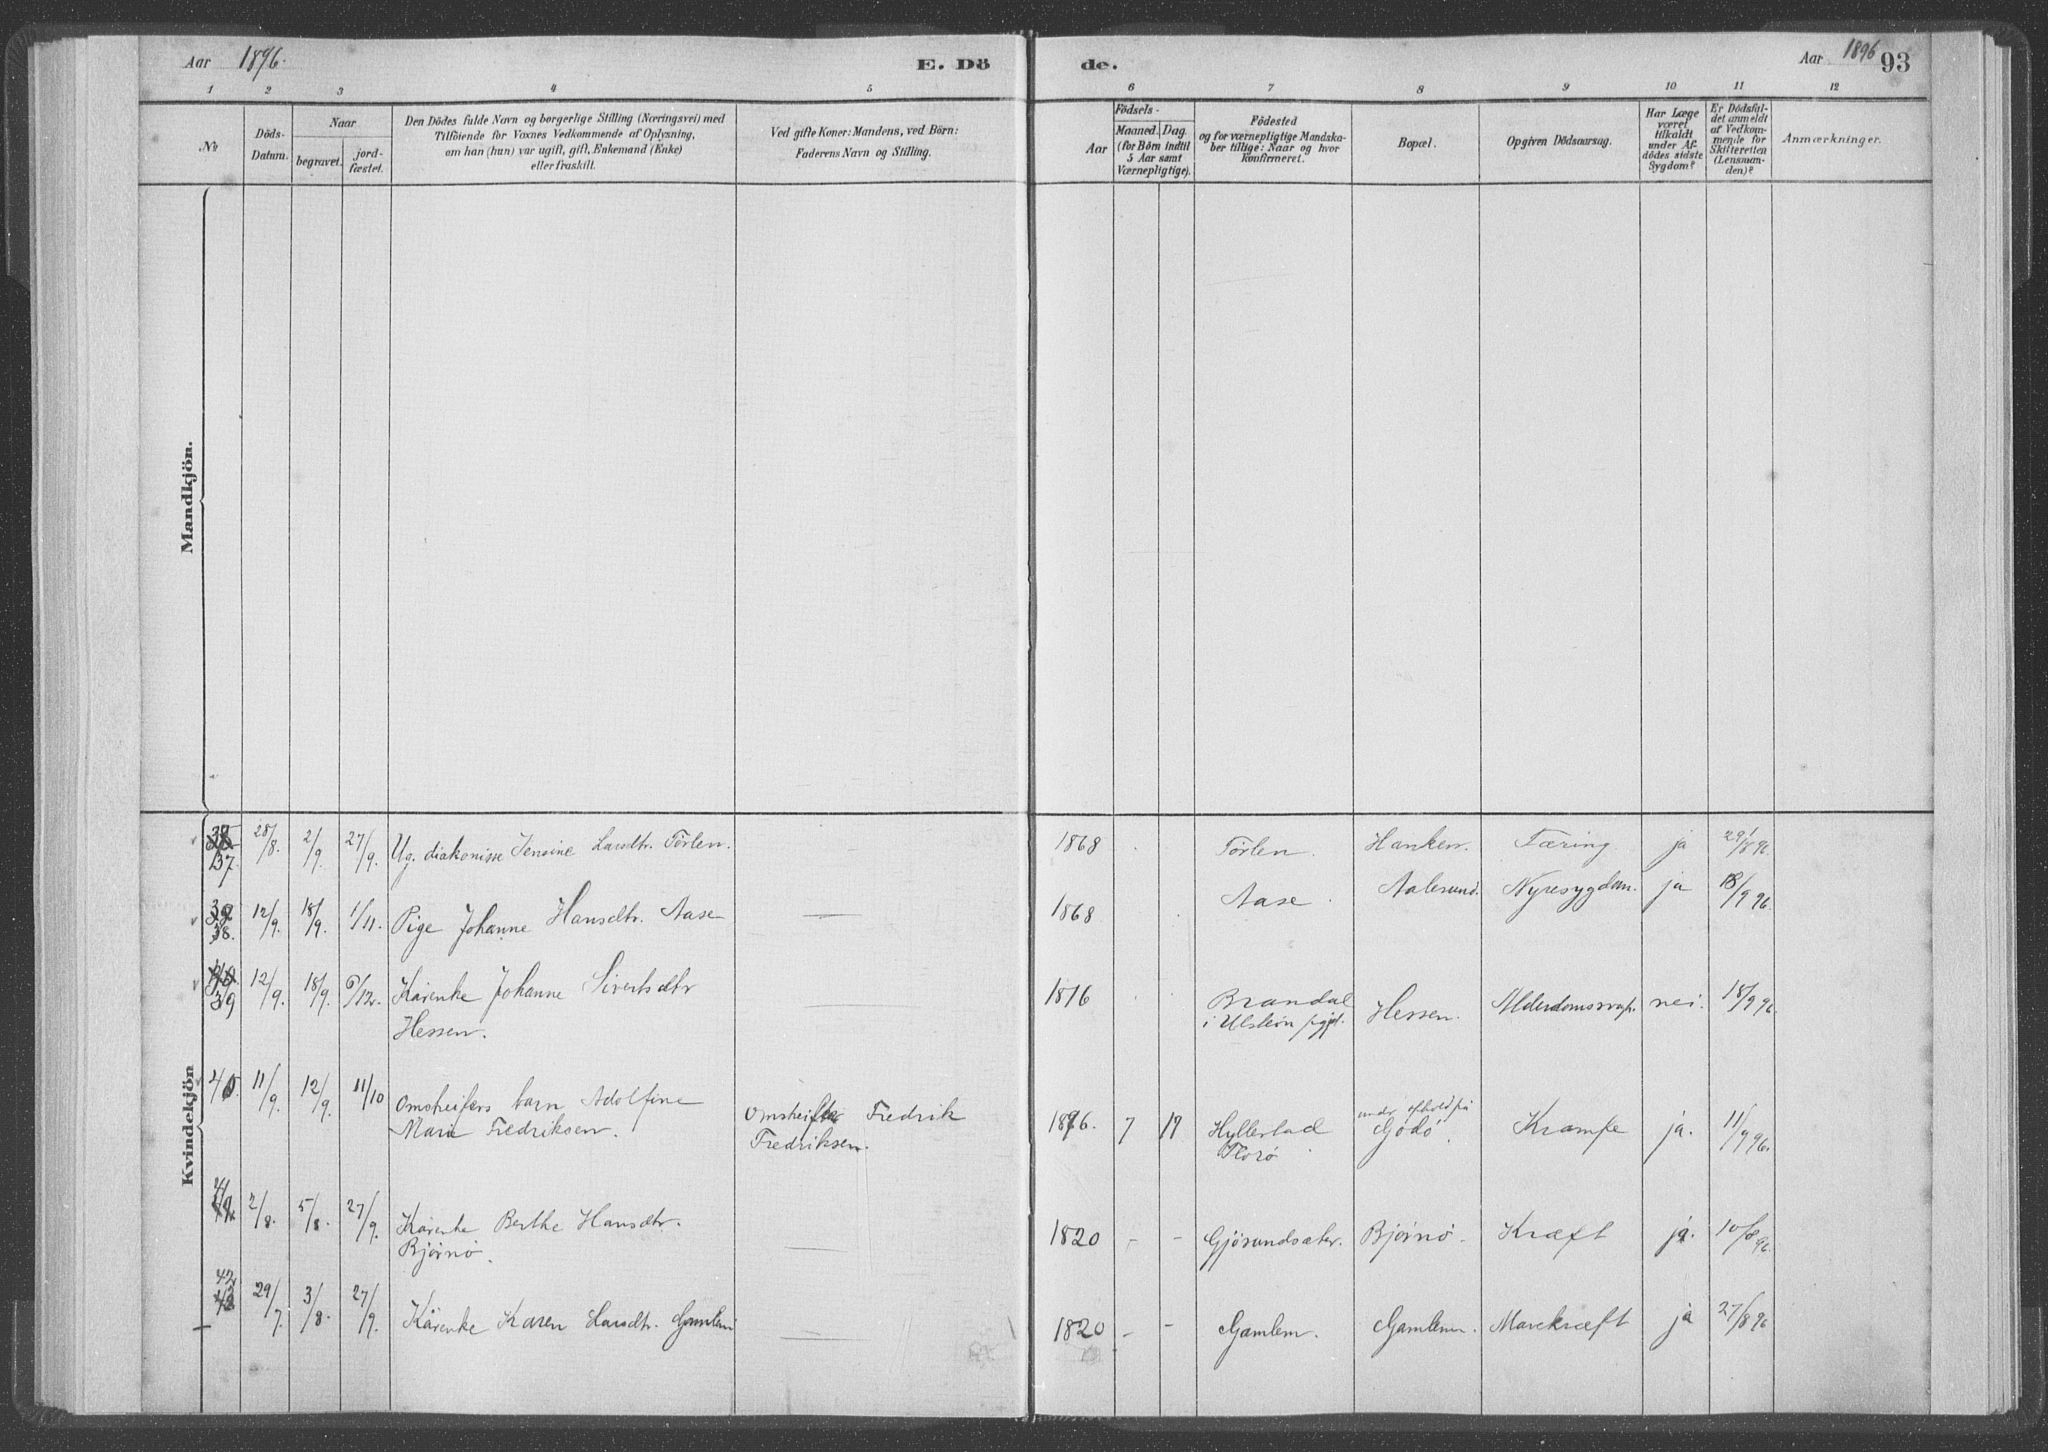 Aar 1896.
E. Dö
de.
Aar 1896
93
1 2 3 4 5 6 7 8 9 10 11 12
No
Döds-
Datum.
Naar
begravet.
jord-
fæstet.
Den Dödes fulde Navn og borgerlige Stilling (Næringsvei) med
Tilföiende for Voxnes Vedkommende af Oplysning,
om han (hun) var ugift, gift, Enkemand (Enke)
eller fraskilt.
Ved gifte Koner: Mandens, ved Börn:
Faderens Navn og Stilling.
Aar
Födsels-
Maaned. Dag.
(for Börn indtil
5 Aar samt
Værnepligtige).
Födested
og for værnepligtige Mandska-
ber tillige: Naar og hvor
Konfirmeret.
Bopæl.
Opgiven Dödsaarsag.
Har Læge
været
tilkaldt
under Af-
dödes sidste
Sygdom?
Er Dödsfal-
det anmeldt
af Vedkom-
mende for
Skifteretten
(Lensman-
den)?
Anmærkninger.
Mandkjön.
Kvindekjön
37. 28/8. 2/9. 27/9. Ug. diakonisse Jensine Larsdtr. Tørlen. — 1868 Tørlen. Hanken. Tæring ja 29/8 96.
38. 12/9. 18/9. 1/11. Pige Johanne Hansdtr. Aase — 1868 Aase. Aalesund. Nyresygdom. ja 18/9 96.
39 12/9. 18/9. 6/12. Kårenke Johanne Sivertsdtr — 1816 Brandal Hessen. nei. 18/9 96.
Hessen. i Ulstein
40 11/9. 12/9. 11/10 barn Adolfine Fredrik 1896. 7 19 Hyllestad under ophold på Krampe ja. 11/9 96.
Marie Fredriksen. Fredriksen. Florø Gödö.
41 2/8. 5/8. 27/9. Kårenke Berthe Hansdtr. — 1820 - - Gjøsundsæter. Bjørnö. Kræft ja. 10/8 96.
Bjørnö.
42 29/7. 3/8. 27/9. Kårenke Karen Larsdtr. Gamlem — 1820 - - Gamlem. Gamlem. Mavekræft ja 27/8 96